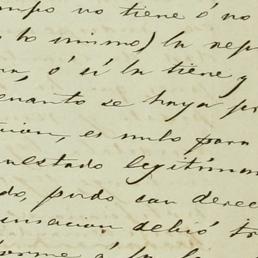 mpo no tiene ó no
lo mismo) la rep
ra, ó si la tiene y
enanto se haya pr
cion, es nulo para
nestado legítima
do, pudo con derec
nsacion debió tr
forme á la l